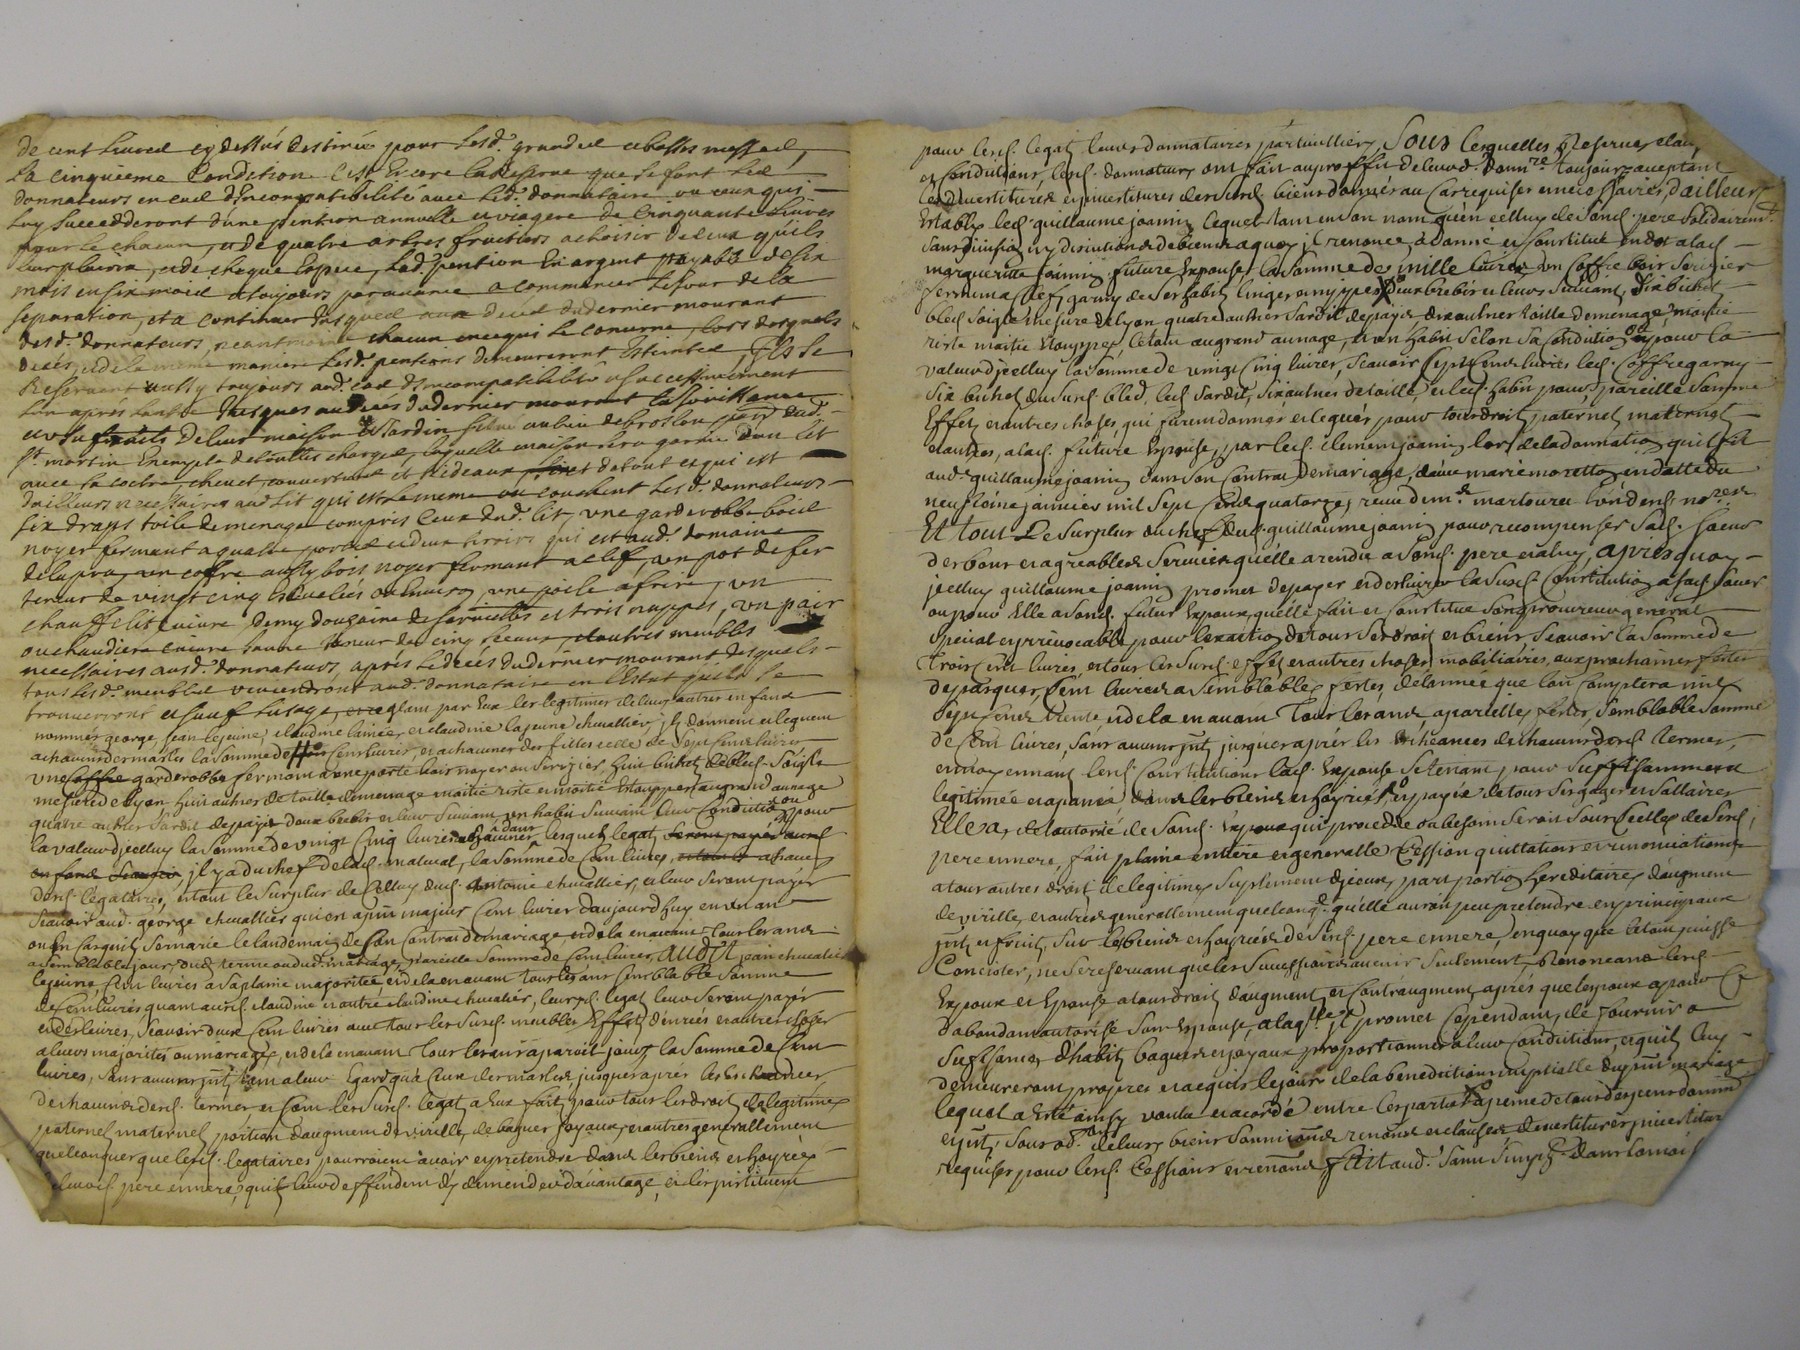 de cent Livres cy dessus destinés pour Lesd. grandes et basses messes,
La cinquieme Condition C'est Encore la Reserve que se font Les
donnateurs en cas d'Incompatibilité avec Led. donnataire ou ceux qui
luy succederont d'une pention annuelle et viagere de Cinquante Livres
pour chacun, et de quatre arbres fruitiers a choisir de ceux qu'ils
leur plaira, et de chaque Espece, Lad. pention En argent payable de six
mois en six mois et toujours par avance a commencer Le jour de la
separation, et a continuer Jusques au deces du dernier mourant
desd. donnateurs, neantmoins chacun en ce qui Le concerne, lors desquels
deces, et de la meme maniere Lesd. pentions demeureront Esteintes, Ils se
Reservent aussy toujours aud. cas d'Incompatibilité et successivement
L'un aprés L'autre Jusques au decés du dernier mourant la Jouissance
et usufruits de leur maison et Jardin situé au lieu de broslon par. dud.
St. martin Exempte de touttes charges, laquelle maison sera garnie d'un lit
avec sa coitre, chevet, couverture et Rideaux et de tout ce qui est
d'ailleurs necessaire aud. lit qui est Le meme ou couchent Lesd. donnateurs
six draps toile de menage compris Ceux dud. lit, une garderobbe bois
noyer fermant a quatre portes et deux tiroirs qui est aud. domaine
de lapra, un coffre aussy bois noyer fermant a clef, un pot de fer
teneur de vingt cinq ecuelles ou environ, une poile a frire, un
chauffe lit cuivre, demy douzaine de serviettes et trois nappes, un pair
ou chaudiere cuivre jaune teneur de cinq seaux, et autres meubles
necessaires ausd. donnateurs, aprés Le decés du dernier mourant desquels
tous Lesd. meubles reviendront aud. donnataire en L'Estat qu'ils se
trouverront et sauf Lusage, reglant par Eux les legitimes de leurs autres enfans
nommés george, jean le jeune, claudine lainée, et claudine la jeune chevallier, Ils donnent et leguent
a chacun des masles la somme de cent livres, et a chacune des filles celle de Sept Cent livres
une garderobbe fermant a une porte bois noyer ou Serizier, huit bichets de bled Soigle
mesure de lyon huit aulnes de toille de menage moitie riste et moitie Etouppes au grand aunage
quatre aulnes Sardit de payis deux brebis et leur suivant, un habit suivant leur Condition ou pour
la valeur d'jcelluy la somme de vingt cinq livres a chacune, dans lesquels legat
il y a du chef de lad. maternel, la somme de Cent livres, a chacun
desd. legataires, et tout le Surplus de Celluy dud. Antoine chevallier, et leur seront payés
Scavoir aud. george chevallier qui est a p̃nt majeur Cent livres daujourd'huy en un an
ou en cas quil se marie le landemain de son Contrat de mariage, et de la en avant tous les ans
a semblable jour, dud. terme ou dud. mariage, pareille somme de Cent livres, audit jean chevalier
le jeune, Cent livres a sa plaine majoritée, et de la en avant tous les ans semblable somme
de Cent livres quant ausd. claudine et autre claudine chevalier, leursd. legat leur seront payés
et délivrés, Scavoir deux Cent livres avec tous les Susd. meubles Effets denrées et autres choses
a leurs majorités ou mariage, et de la en avant tous les ans a pareil jour la somme de Cent
livres, sans aucuns jnt. tant a leur Egard qu'a Ceux des masles, jusques apres les Escheances
de chacuns desd. termes et sont les Susd. legat a Eux fait, pour tous les droits de legitimes
paternel maternel, portion d'augment de virille, de bagues joyaux, et autres generallement
quelconques que lesd. legataires pourroient avoir et pretendre dans les biens et hoyries
de leursd. pere et mere, qu'ils leur deffendent d'y demender davantage, et les jnstituent
pour lesd. legat leurs donnataires particulliers, Sous lesquelles Reserves, clauses
et Conditions, lesd. donnateurs ont fait au proffit de leurd. donnre. toujours acceptant
les devestitures et jnvestitures desd. biens donnés au cas requises et necessaires, d'ailleurs
Establis led. guillaume joanin lequel tant en son nom qu'en celluy de sond. pere solidairemt.
sans division ny discution de biens a quoy il renonce, a donné et constitué en dot a lad.
margueritte joanin future Expouse, la somme de mille livres, un coffre bois serizier
fermant a clef, garny de ses habits linges et nippes, deux brebis et leurs suivant, six bichets
bled soigle mesure de lyon quatre aulnes Sardit de payis dix aulnes toille de menage, moitie
riste moitie Etouppes, le tout au grand aunage, et un habit selon sa condition ou pour la
valeur d'jcelluy la somme de vingt cinq livres, Scavoir sept cent livres led. coffre garny
six bichets du susd. bled, led. Sardit, six aulnes de toille, et led. habit pour pareille somme
Effets et autres choses, qui furent donnés et legués pour tous droits paternel maternel
et autres, a lad. future Expouse, par led. clement joanin lors de la donnation quil fit
aud. guillaume joanin dans son contrat de mariage, avec marie moretton en datte du
neufvieme janvier mil sept cent quatorze, receu de me. martouret l'un desd. nores.
Et tout Le surplus du chef dud. guillaume joanin pour recompenser sad. soeur
des bons et agreables services quelle a rendu a sond. pere et a luy, aprés quoy
jcelluy guillaume joanin promet de payer et deslivrer la susd. constitution a sad. soeur
ou pour Elle a sond. futur Expoux, qu'elle fait et constitue son procureur general
special et jrrevocable pour l'exaction de tous ses droits et biens Scavoir la somme de
trois cent livres, et tous les susd. effets et autres choses mobiliaires, aux prochaines festes
de pasques, cent livres a semblables festes de lannée que l'on comptera mil
sept cent trente et de la en avant tous les ans a pareilles festes, semblable somme
de cent livres, sans aucuns jnt. jusques aprés les Escheances de chacuns desd. termes,
et moyennant lesd. constitutions lad. Expouse se tenant pour suffisamment
legitimée et apanée dans les biens et hoyries, et payée de tous ses gages et sallaires
Elle a, de lautorité de sond. Expoux qui procedde ou besoin seroit sous celles de sesd.
pere et mere, fait plaine entiere et generalle cession quittation et renonciation
a tous autres droits de legitimes suplement d'jceux, part portion hereditaire, d'augment
de virille, et autres generallement quelconqe. qu'elle auroit peu pretendre en principaux
jnt. et fruits, sur les biens et hoyries de sesd. pere et mere, en quoy que le tout puisse
Concister, ne se reservant que les successions a venir seulement, Renonceant lesd.
Expoux et Epouse a tous droits d'augment, et contraugment, aprés que lexpoux a pour ce
d'abondant autorisé son Expouse, a laqlle. jl promet cependant, de fournir a
sufisance, d'habits bagues et joyaux proportionnes a leur condition, et quil luy
demeureront propres et acquis le jour de la benediction nuptialle du p̃nt mariage
lequel a Esté ainsy voulu et accordé entre les parties a peine de tous despens dommag.
et jnt. sous obon. de leurs biens soumissions renons. et clauses devestitures jnvestitur.
requises pour lesd. cessions et renons. fait aud. saint simph. dans la maison